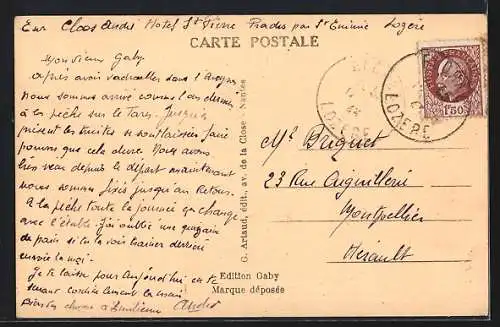 Env. Cloos André Hotel St Pierre Prades par St Enimie Lozère
CARTE POSTALE
Monsieur Gaby
après avoir dans l'
nous sommes arrivé dernier
à la pêche sur le Tarn. Jusqu'à
présent les truites se sont laissées faire
pouvu que cela dure. Nous avons
bien depuis le départ maintenant
nous sommes fixés jusqu'au Retour.
A la pêche toute la journée ça change
avec l' J'ai oublié une
de pain si tu la vois trainer derrière
envoie la moi.
Je te laisse pour aujourd'hui en te
serrant cordialement la main
choses à André
G. Artaud, édit., av. de la Close - Nantes
Edition Gaby
Marque déposée
LOZERE
LOZERE
1F50
Mr Briguet
23 Rue Aiguillerie
Montpellier
Hérault